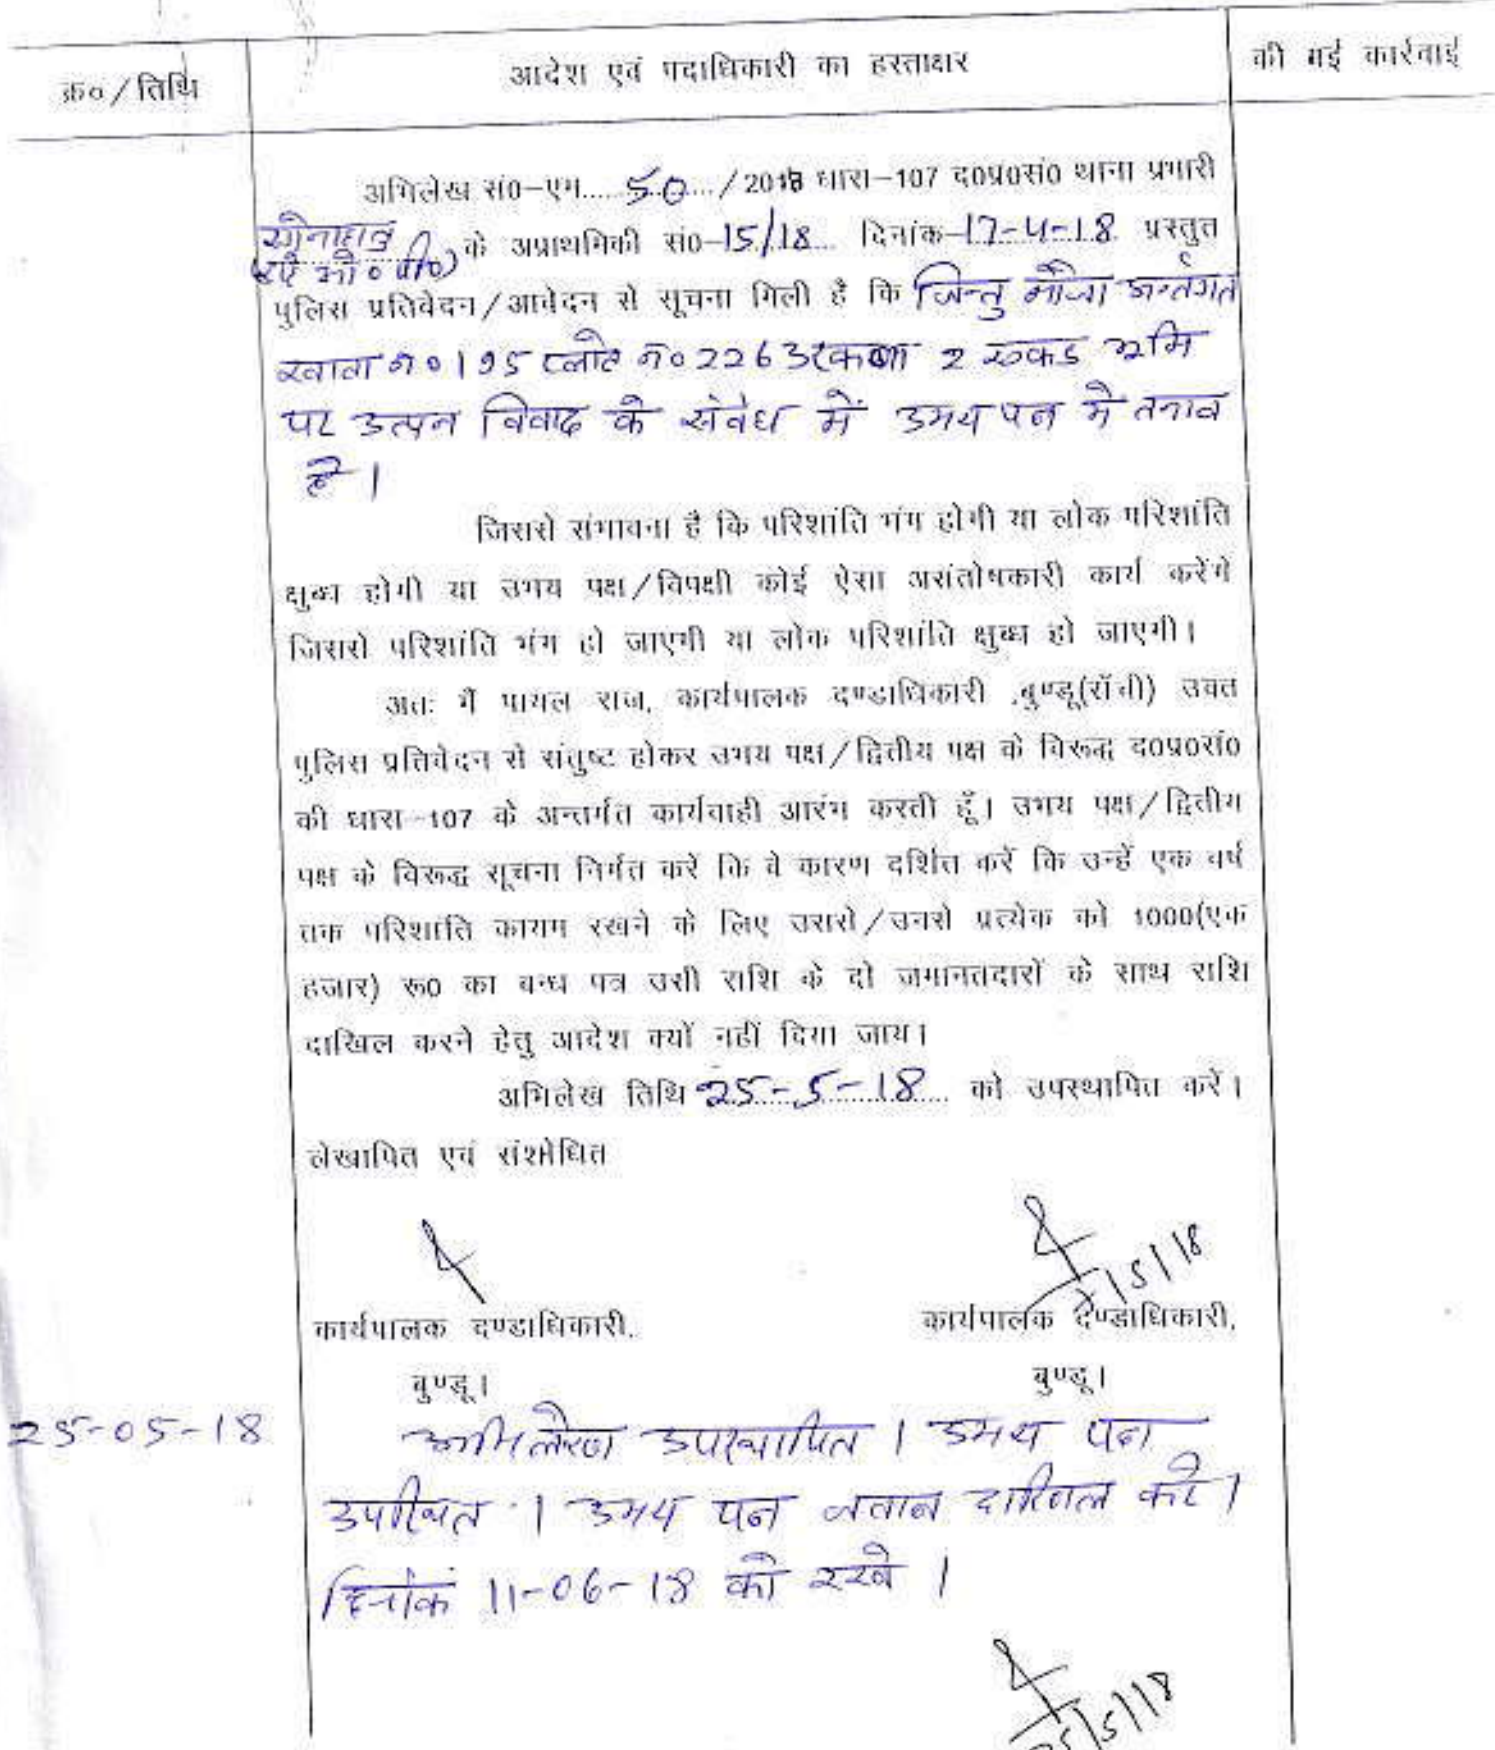 क्र०/तिथि
आदेश एवं पदाधिकारी का हस्ताक्षर
की गई कार्रवाई
अभिलेख सं0-एम..... 50 .../2018 धारा-107 द0प्र0सं0 थाना प्रभारी
सोनाहातु
के अप्राथमिकी सं0-15/18 दिनांक-17-4-18 प्रस्तुत
पुलिस प्रतिवेदन/आवेदन से सूचना मिली है कि जिन्तु मौजा अन्तर्गत
खाता नं० 195 प्लोट नं० 2263 रकबा 2 एकड भूमि
पर उत्पन विवाद के संबंध में उभय पक्ष मे तनाव
है।
जिससे संभावना है कि परिशांति भंग होगी या लोक परिशांति
क्षुब्ध होगी या उभय पक्ष/विपक्षी कोई ऐसा असंतोषकारी कार्य करेंगे
जिससे परिशांति भंग हो जाएगी या लोक परिशांति क्षुब्ध हो जाएगी।
अतः मैं पायल राज, कार्यपालक दण्डाधिकारी ,बुण्डू(राँची) उक्त
पुलिस प्रतिवेदन से संतुष्ट होकर उभय पक्ष/द्वितीय पक्ष के विरूद्ध द0प्र0सं0
की धारा-107 के अन्तर्गत कार्यवाही आरंभ करती हूँ। उभय पक्ष/द्वितीय
पक्ष के विरूद्ध सूचना निर्गत करें कि वे कारण दर्शित करें कि उन्हें एक वर्ष
तक परिशांति कायम रखने के लिए उससे/उनसे प्रत्येक को 1000(एक
हजार) रू0 का बन्ध पत्र उसी राशि के दो जमानतदारों के साथ राशि
दाखिल करने हेतु आदेश क्यों नहीं दिया जाय।
अभिलेख तिथि 25-5-18 को उपस्थापित करें।
लेखापित एवं संशोधित
कार्यपालक दण्डाधिकारी,
बुण्डू।
/5/18
कार्यपालक दण्डाधिकारी,
बुण्डू।
25-05-18
अभिलेख उपस्थापित। उभय पक्ष
उपस्थित। उभय पक्ष जवाब दाखिल करे।
दिनांक 11-06-18 को रखे।
25/5/18